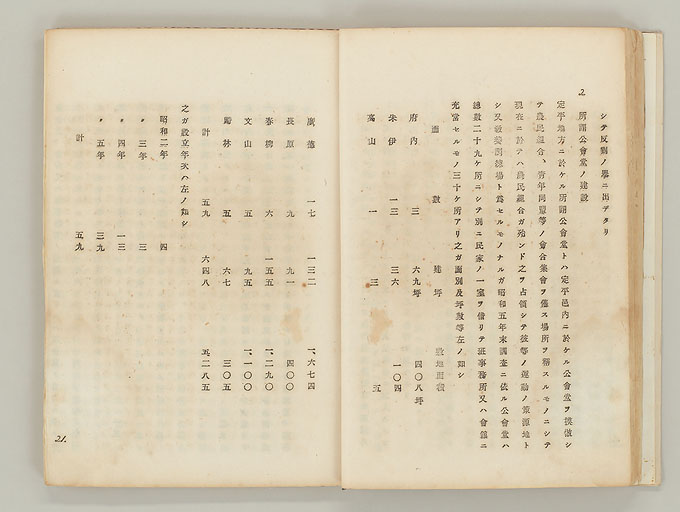 シテ反對ノ擧ニ出デタリ
2 所謂公會堂ノ建設
定平地方ニ於ケル所謂公會堂トハ定平邑內ニ於ケル公會堂ヲ模倣シ
テ農民組合、靑年同盟等ノ會合集會ヲ催ス場所ヲ稱スルモノニシテ
現在ニ於テハ農民組合ガ殆ンド之ヲ占領シテ彼等ノ運動ノ策源地ト
シ又敎養訓練場ト爲セルモノナルガ昭和五年末調査ニ依ル公會堂ハ
總數二十九ケ所ニシテ別ニ民家ノ一室ヲ借リテ班事務所又ハ會館ニ
充當セルモノ三十ケ所アリ之ガ面別及坪數等左ノ如シ
面 數 建坪 敷地面積
府內 三 六九坪 四〇八坪
朱伊 一三 三六 一〇四
高山 一 三 五
廣德 一七 一三二 一、六七四
長原 九 九一 四〇〇
春柳 六 一五五 一、二九〇
文山 五 九五 一、一〇〇
歸林 五 六七 三〇五
計 五九 六四八 五、二八五
之ガ設立年次ハ左ノ如シ
昭和二年 四
〃三年 三
〃四年 一三
〃五年 三九
計 五九
21.